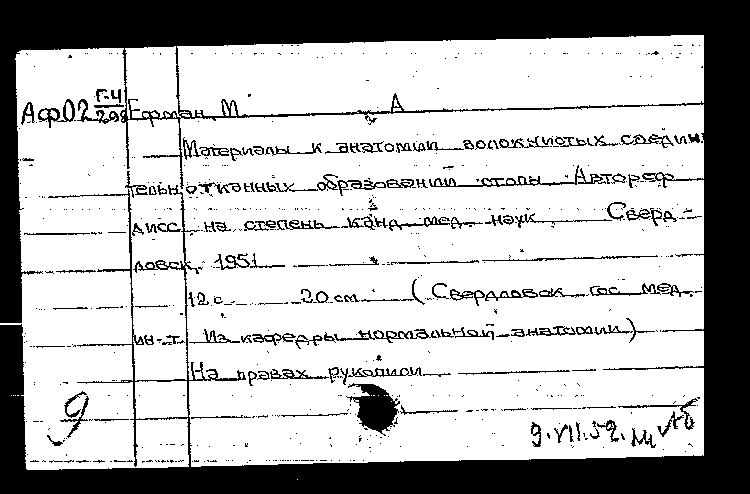 АфО2 Г-4/298 Ефман, М. А
Материалы к анатомии волокнистых соедин
тельнотканных образований стопы Автореф
дисс. на степень канд мед. наук. Сверд-
ловск, 1951
12 с 20 см. (Свердловск гос мед.
ин-т. Из кафедры нормальной анатомии)
На правах рукописи
9
9.VII.52.